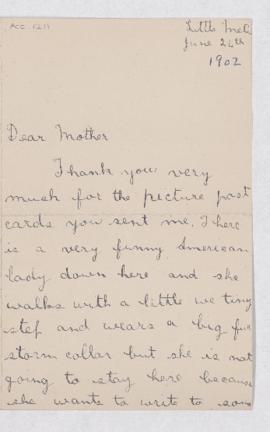 ACC. 1211
Little Met
June 24th
1902
Dear Mother
Thank you very
much for the picture post
cards you sent me. There
is a very funny American
lady down here and she
walks with a little we tiny
step and wears a big fur
storm collar but she is not
going to stay here because
she wants to write to som